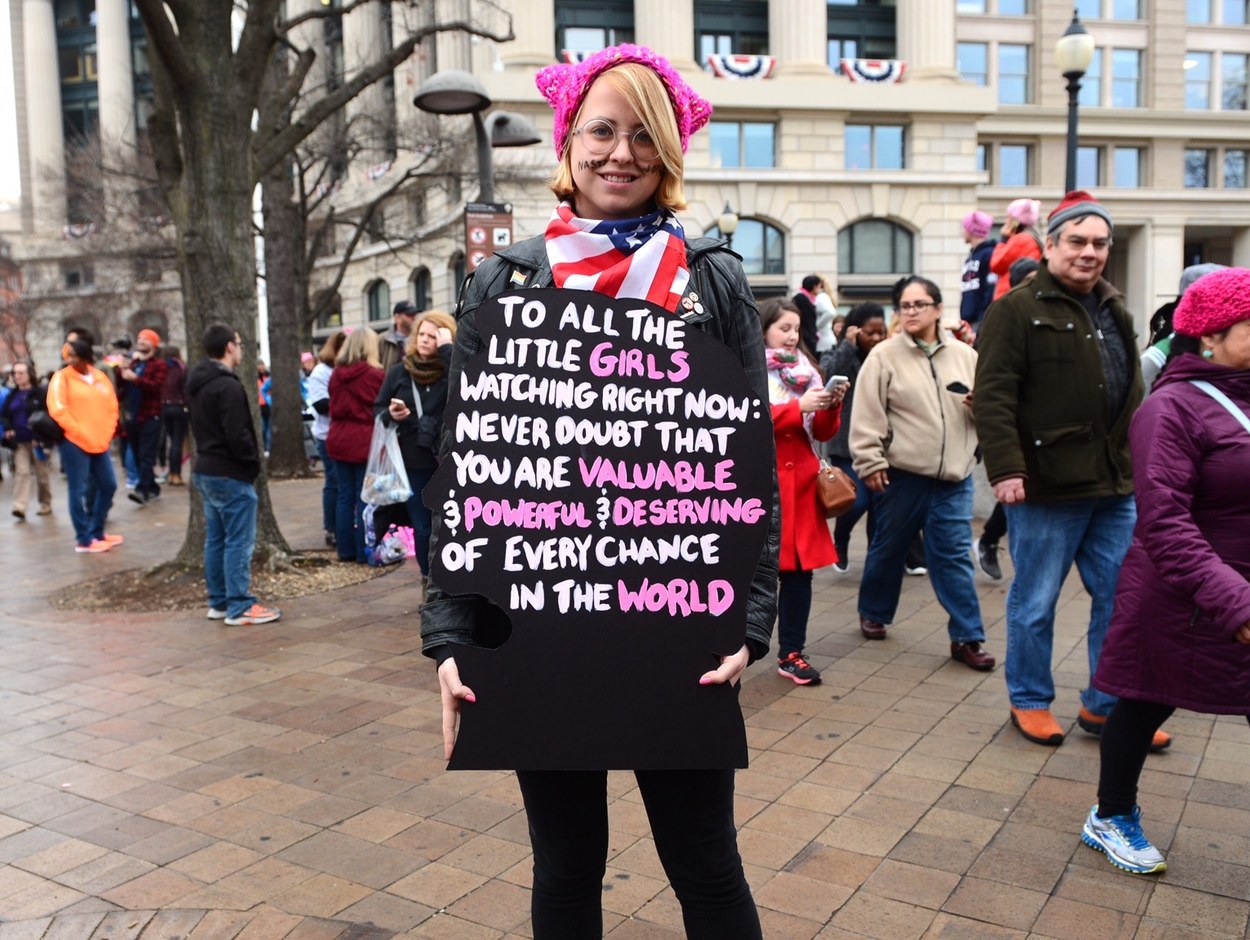 NAS
TO ALL THE
LITTLE GIRLS
WATCHING RIGHT NOW:
NEVER DOUBT THAT
YOU ARE VALUABLE
& POWERFUL & DESERVING
OF EVERY CHANCE
IN THE WORLD